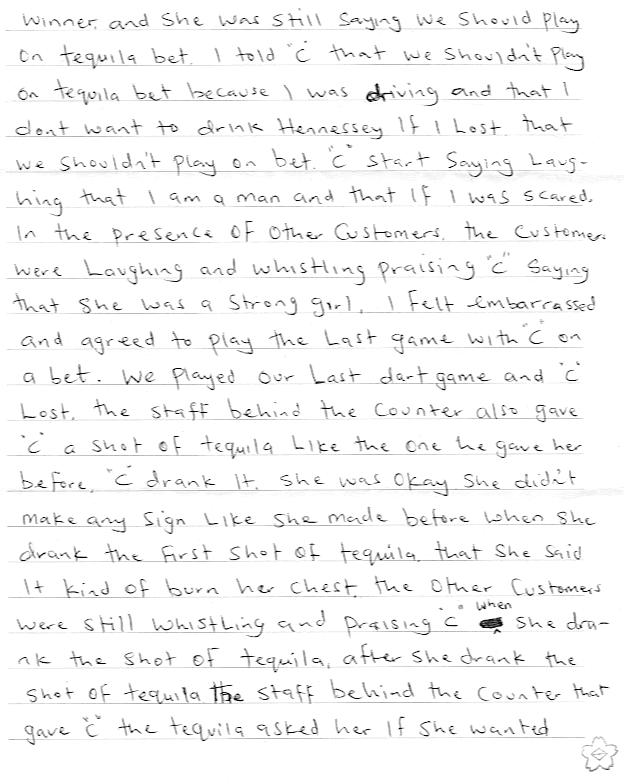 winner. and She was Still Saying we Should play
On tequila bet. I told "C" that we Shouldn't Play
on tequila bet because I was driving and that I
dont want to drink Hennessey If I Lost. that
we Shouldn't play on bet. "C" start Saying Laug-
hing that I am a man and that If I was scared.
In the presence OF Other Customers. the Customer.
were Laughing and whistling praising "C" Saying
that She was a Strong girl. I Felt embarrassed
and agreed to play the Last game with "C" on
a bet. We Played Our Last dart game and "C"
Lost. the Staff behind the Counter also gave
"C" a shot of tequila Like the one he gave her
before. "C" drank It. She was Okay She didn't
make any Sign Like She made before when She
drank the First Shot of tequila. that She Said
It kind of burn her chest. the Other Customers
were still whistling and praising "C" when She dra-
nk the Shot of tequila, after She drank the
Shot OF tequila The Staff behind the Counter that
gave "C" the tequila asked her If She wanted